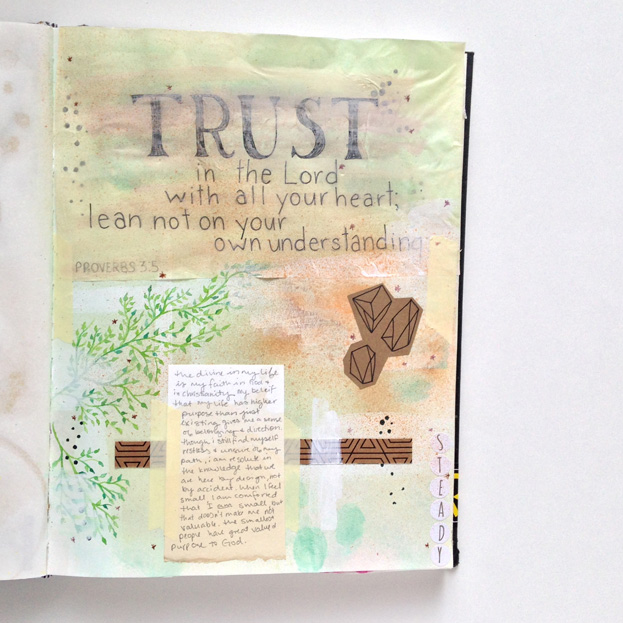 TRUST
in the Lord
with all your heart;
lean not on your
own understanding
PROVERBS 3:5
the divine in my life
is my faith in God +
in Christianity. My belief
that my life has higher
purpose than just
existing gives me a sense
of belonging & direction.
though i still find myself
restless & unsure of my
path, i am resolute in
the knowledge that we
are here by design, not
by accident. when I feel
small I am comforted
that I am small but
that doesn't make me not
valuable. the smallest
people have great value &
purpose to God.
STEADY